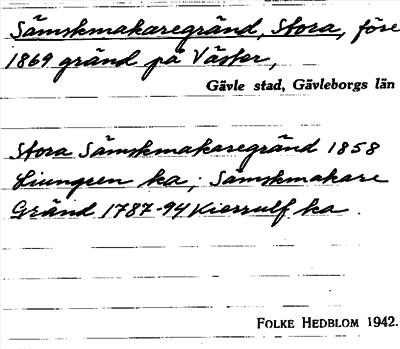 Sämskmakaregränd, Stora, före
1869 gränd på Väster,
Gävle stad, Gävleborgs län
Stora Sämskmakaregränd 1858
Ljungren ka; Sämskmakare
Gränd 1787-94 Kierrulf ka.
FOLKE HEDBLOM 1942.